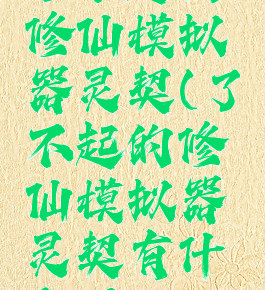 修仙模拟
器灵契(了
不起的修
仙模拟器
灵契有什